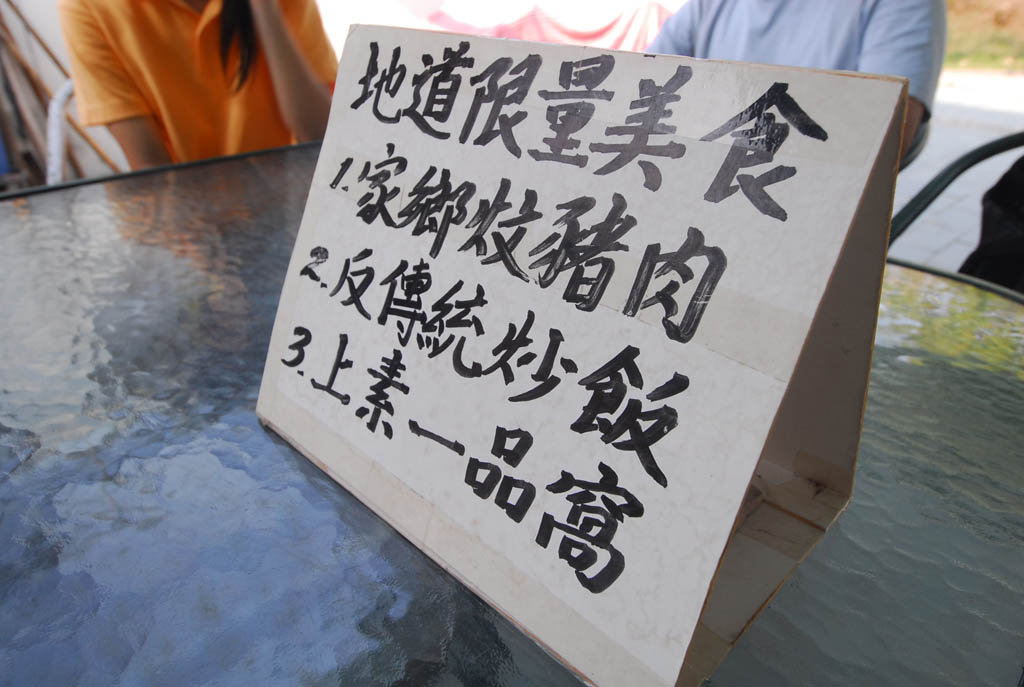 地道限量美食
1.家鄉炆豬肉
2.反傳統炒飯
3.上素一品窩